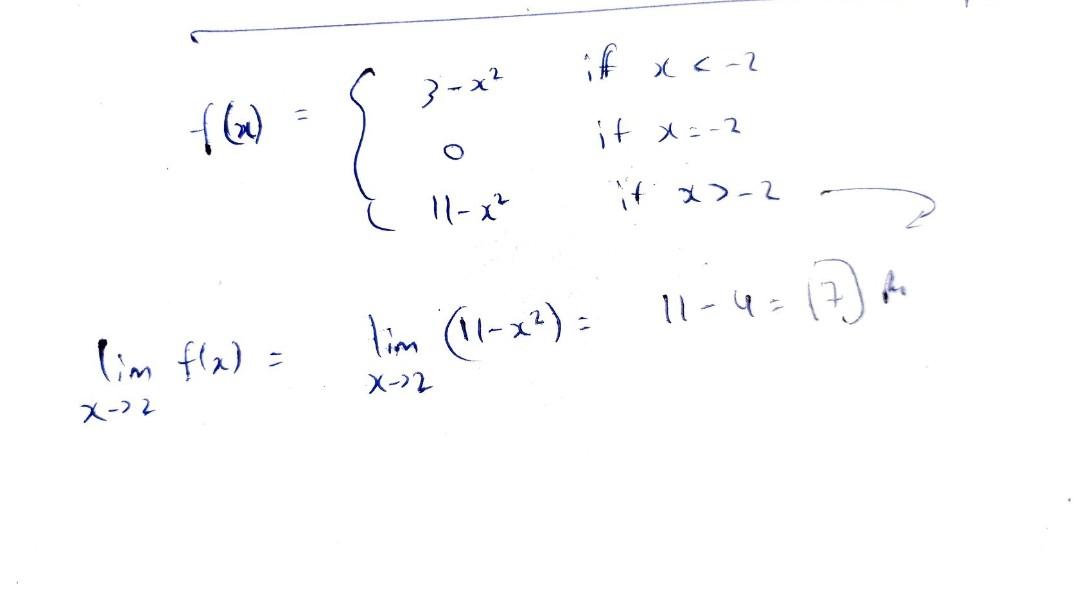 f(x) = { 3-x² if x < -2
0 if x = -2
11-x² if x > -2
lim f(x) = lim (11-x²) = 11 - 4 = 7
x→2 x→2